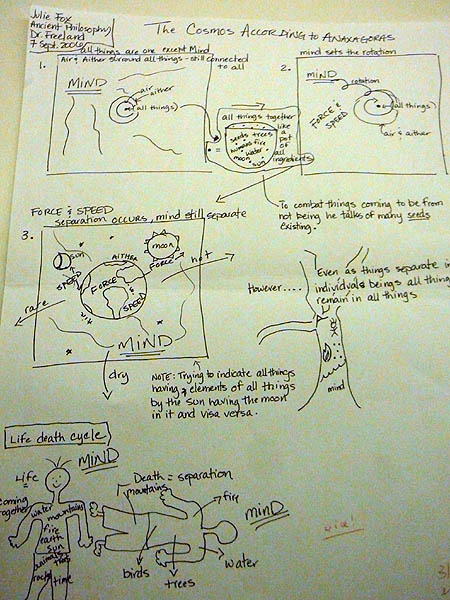 Julie Fox
Ancient Philosophy
Dr. Freeland
7 Sept. 2006
The Cosmos According to Anaxagoras
all things are one except Mind
1.
Air & Aither surround all things - still connected
to all
MIND
air
aither
all things)
mind sets the rotation
2.
MIND
rotation
FORCE &
SPEED
all things)
air & aither
all things together
seeds trees
humans fire
water
moon
sun
like
a
pot
of
all
ingredients
To combat things coming to be from
not being he talks of many seeds
existing.
FORCE & SPEED
separation occurs, mind still separate
3.
sun
moon
AITHER
FORCE
hot
SPEED
FORCE
&
SPEED
rare
air
MIND
dry
However....
Even as things separate in
individuals beings all things
remain in all things
mind
NOTE: Trying to indicate all things
having elements of all things
by the sun having the moon
in it and visa versa.
Life death cycle
MIND
Life
coming
together
water
mountains
fire
earth
sun
animals
rocks
time
Death = separation
mountains
fire
MIND
birds
trees
water